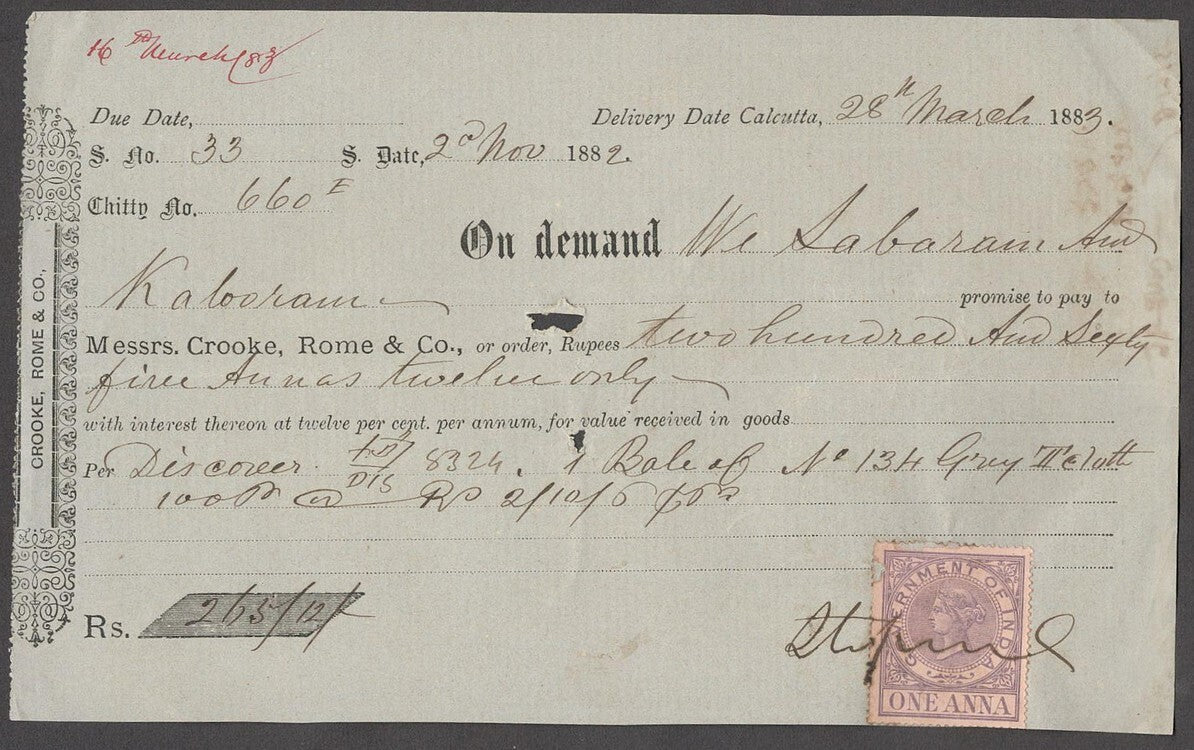 16th March/83
Due Date, Delivery Date Calcutta, 28th March 1883.
S. No. 33 S. Date, 2nd Nov 1882.
Chitty No. 660 E
On demand We Sabaram And
Kalooram promise to pay to
Messrs. Crooke, Rome & Co., or order, Rupees two hundred And Sixty
five Annas twelve only
with interest thereon at twelve per cent. per annum, for value received in goods
Per Discoverer 8324. 1 Bale of No 134 Grey T Cloth
DIS
100 Ps @ Rs 2/10/6
Rs. 265/12/
CROOKE, ROME & CO.,
GOVERNMENT OF INDIA
ONE ANNA